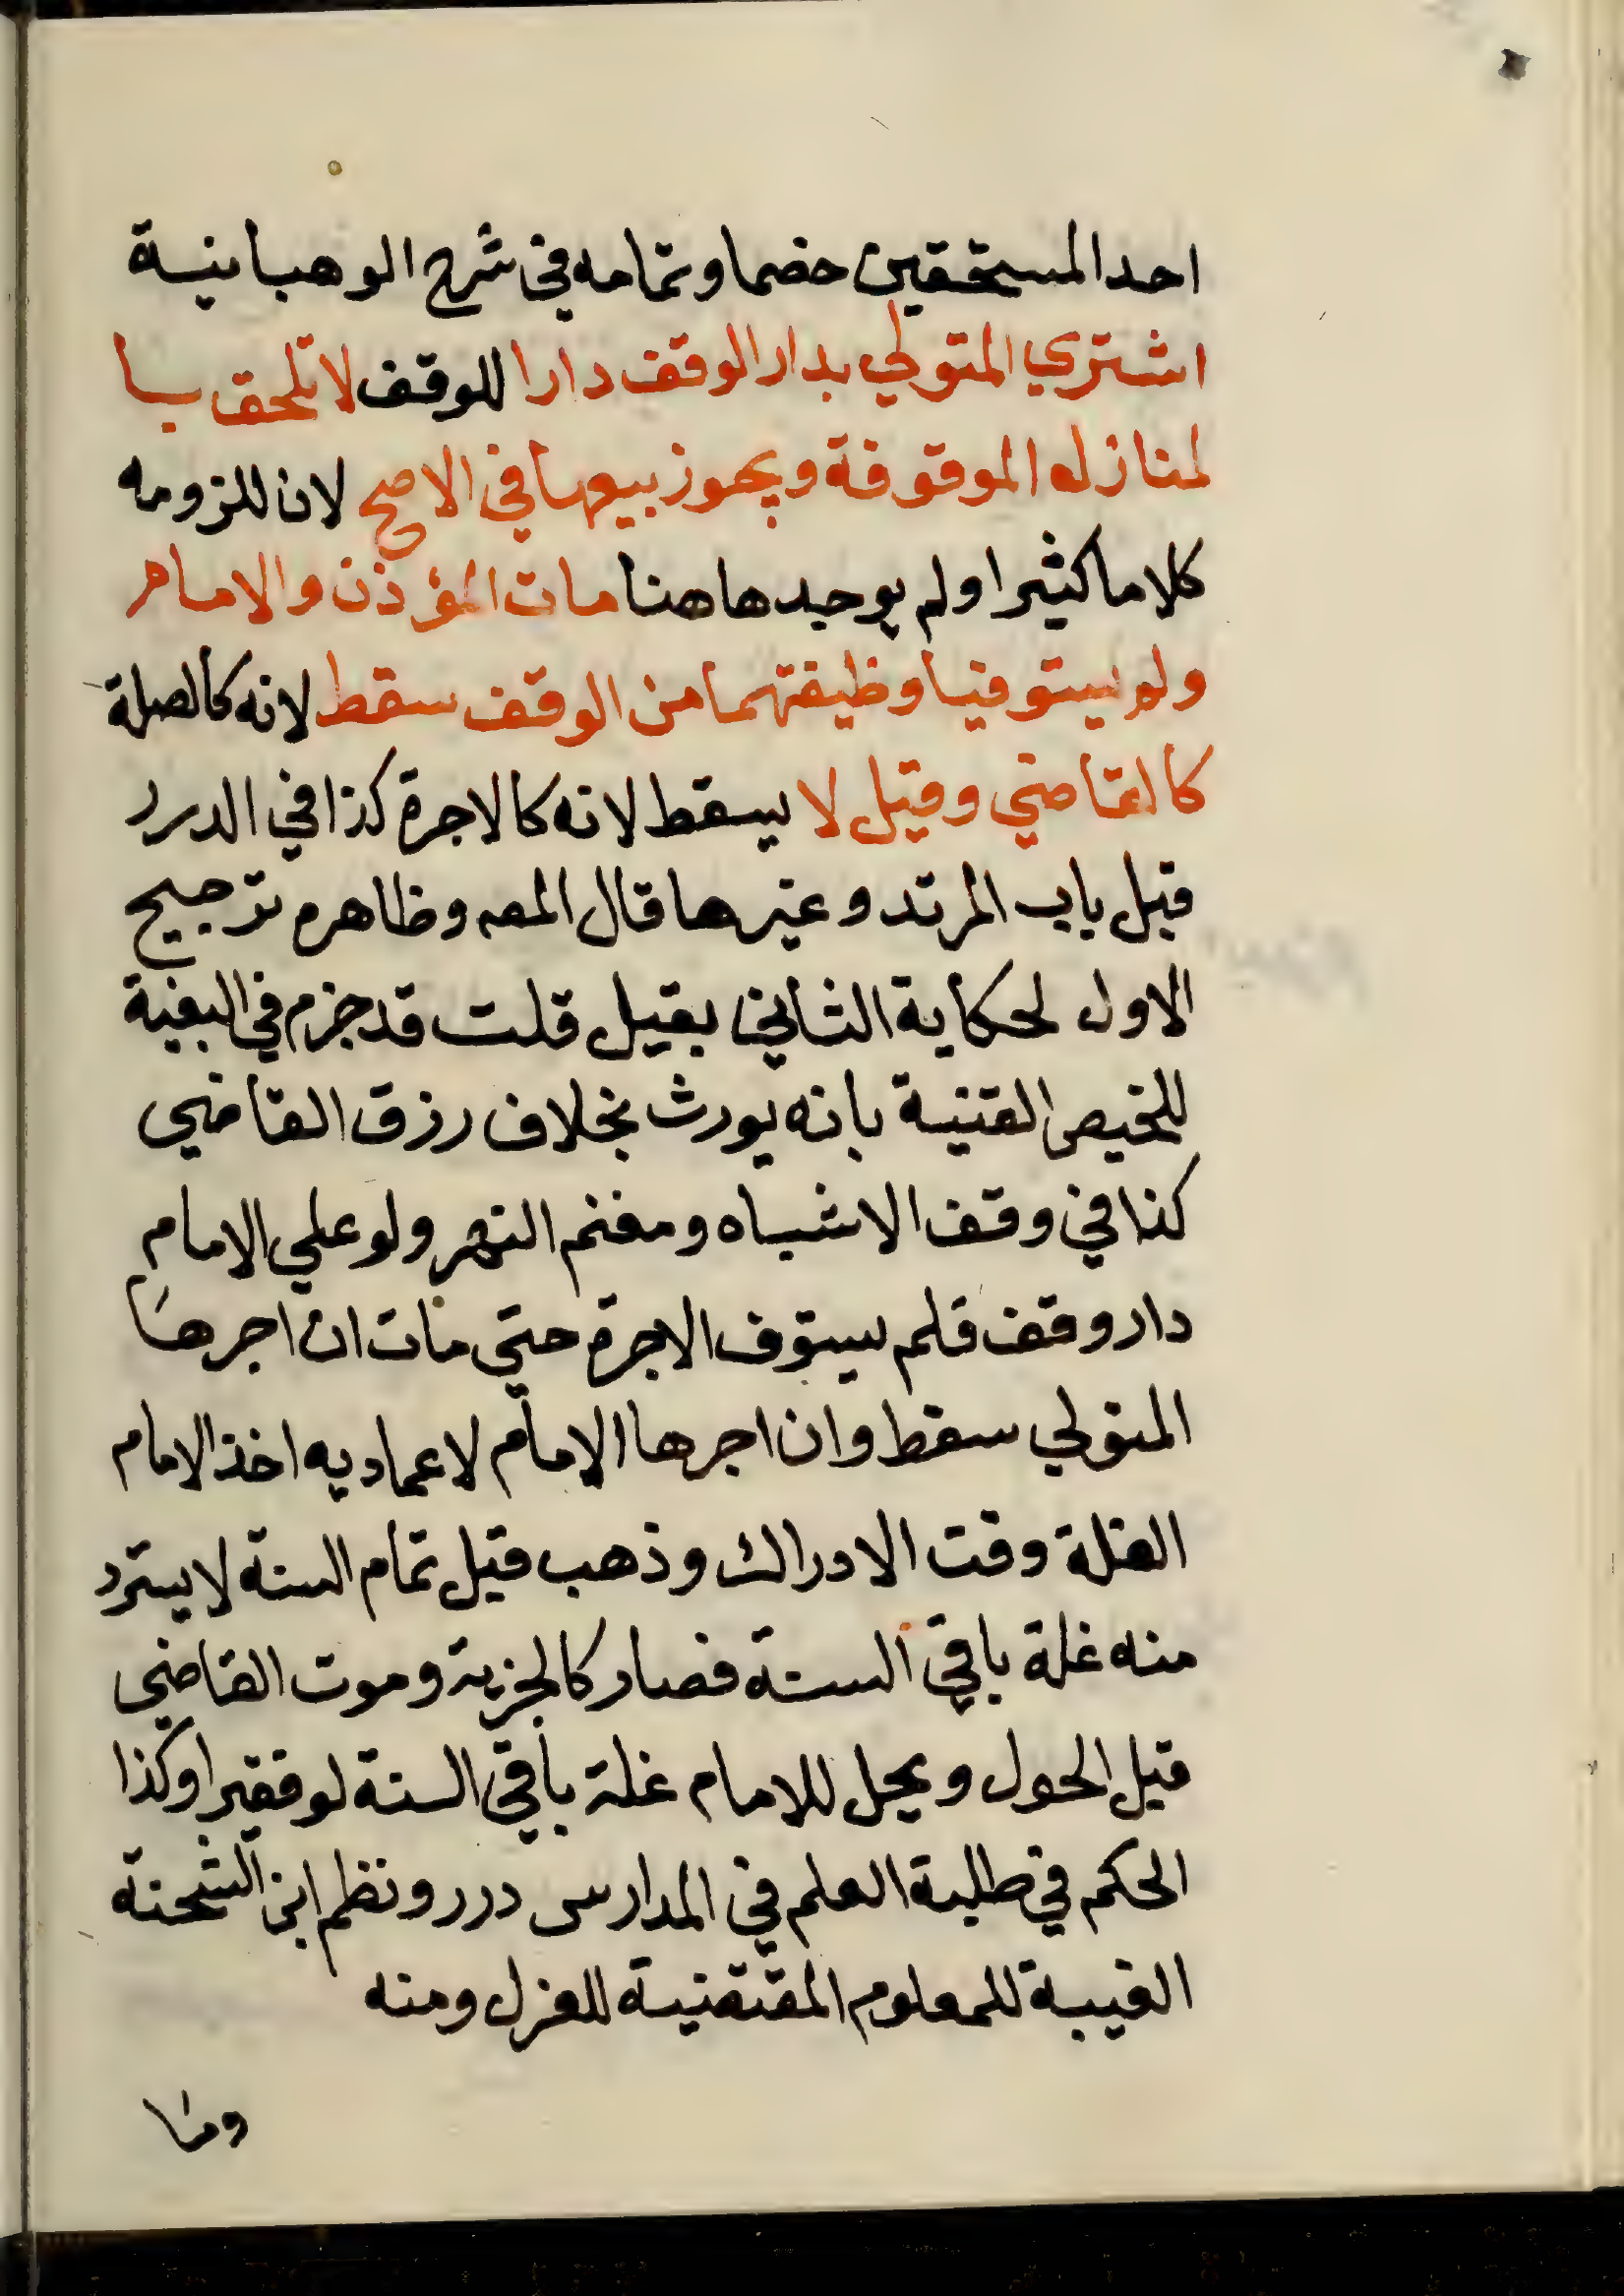 احد المستحقين خصما وتمامه في شرح الوهبانية
اشتري المتولي بدار الوقف دارا للوقف لا تلحق با
لمنازله الموقوفة ويجوز بيعها في الاصح لان للزومه
كلاما كثيرا ولم يوجد هاهنا مات المؤذن والامام
ولم يستوفيا وظيفتهما من الوقف سقط لانه كالصلة
كالقاضي وقيل لا يسقط لانه كالاجرة كذا في الدرر
قبل باب المرتد وغيرها قال المصـ وظاهره ترجيح
الاول لحكاية الثاني بقيل قلت قد جزم في البغية
للخيص القنية بانه يورث بخلاف رزق القاضي
كذا في وقف الاشباه ومغنم النهر ولو علي الامام
دار وقف فلم يستوف الاجرة حتي مات ان اجرها
المتولي سقط وان اجرها الامام لا عماديه اخذ الامام
الغلة وقت الادراك وذهب قبل تمام السنة لا يسترد
منه غلة باقي السنة فصار كالجزية وموت القاضي
قبل الحول ويحل للامام غلة باقي السنة لو فقيرا وكذا
الحكم في طلبة العلم في المدارس درر ونظم ابن الشحنة
الغيبة للمعلوم المقتضية للعزل ومنه
وما